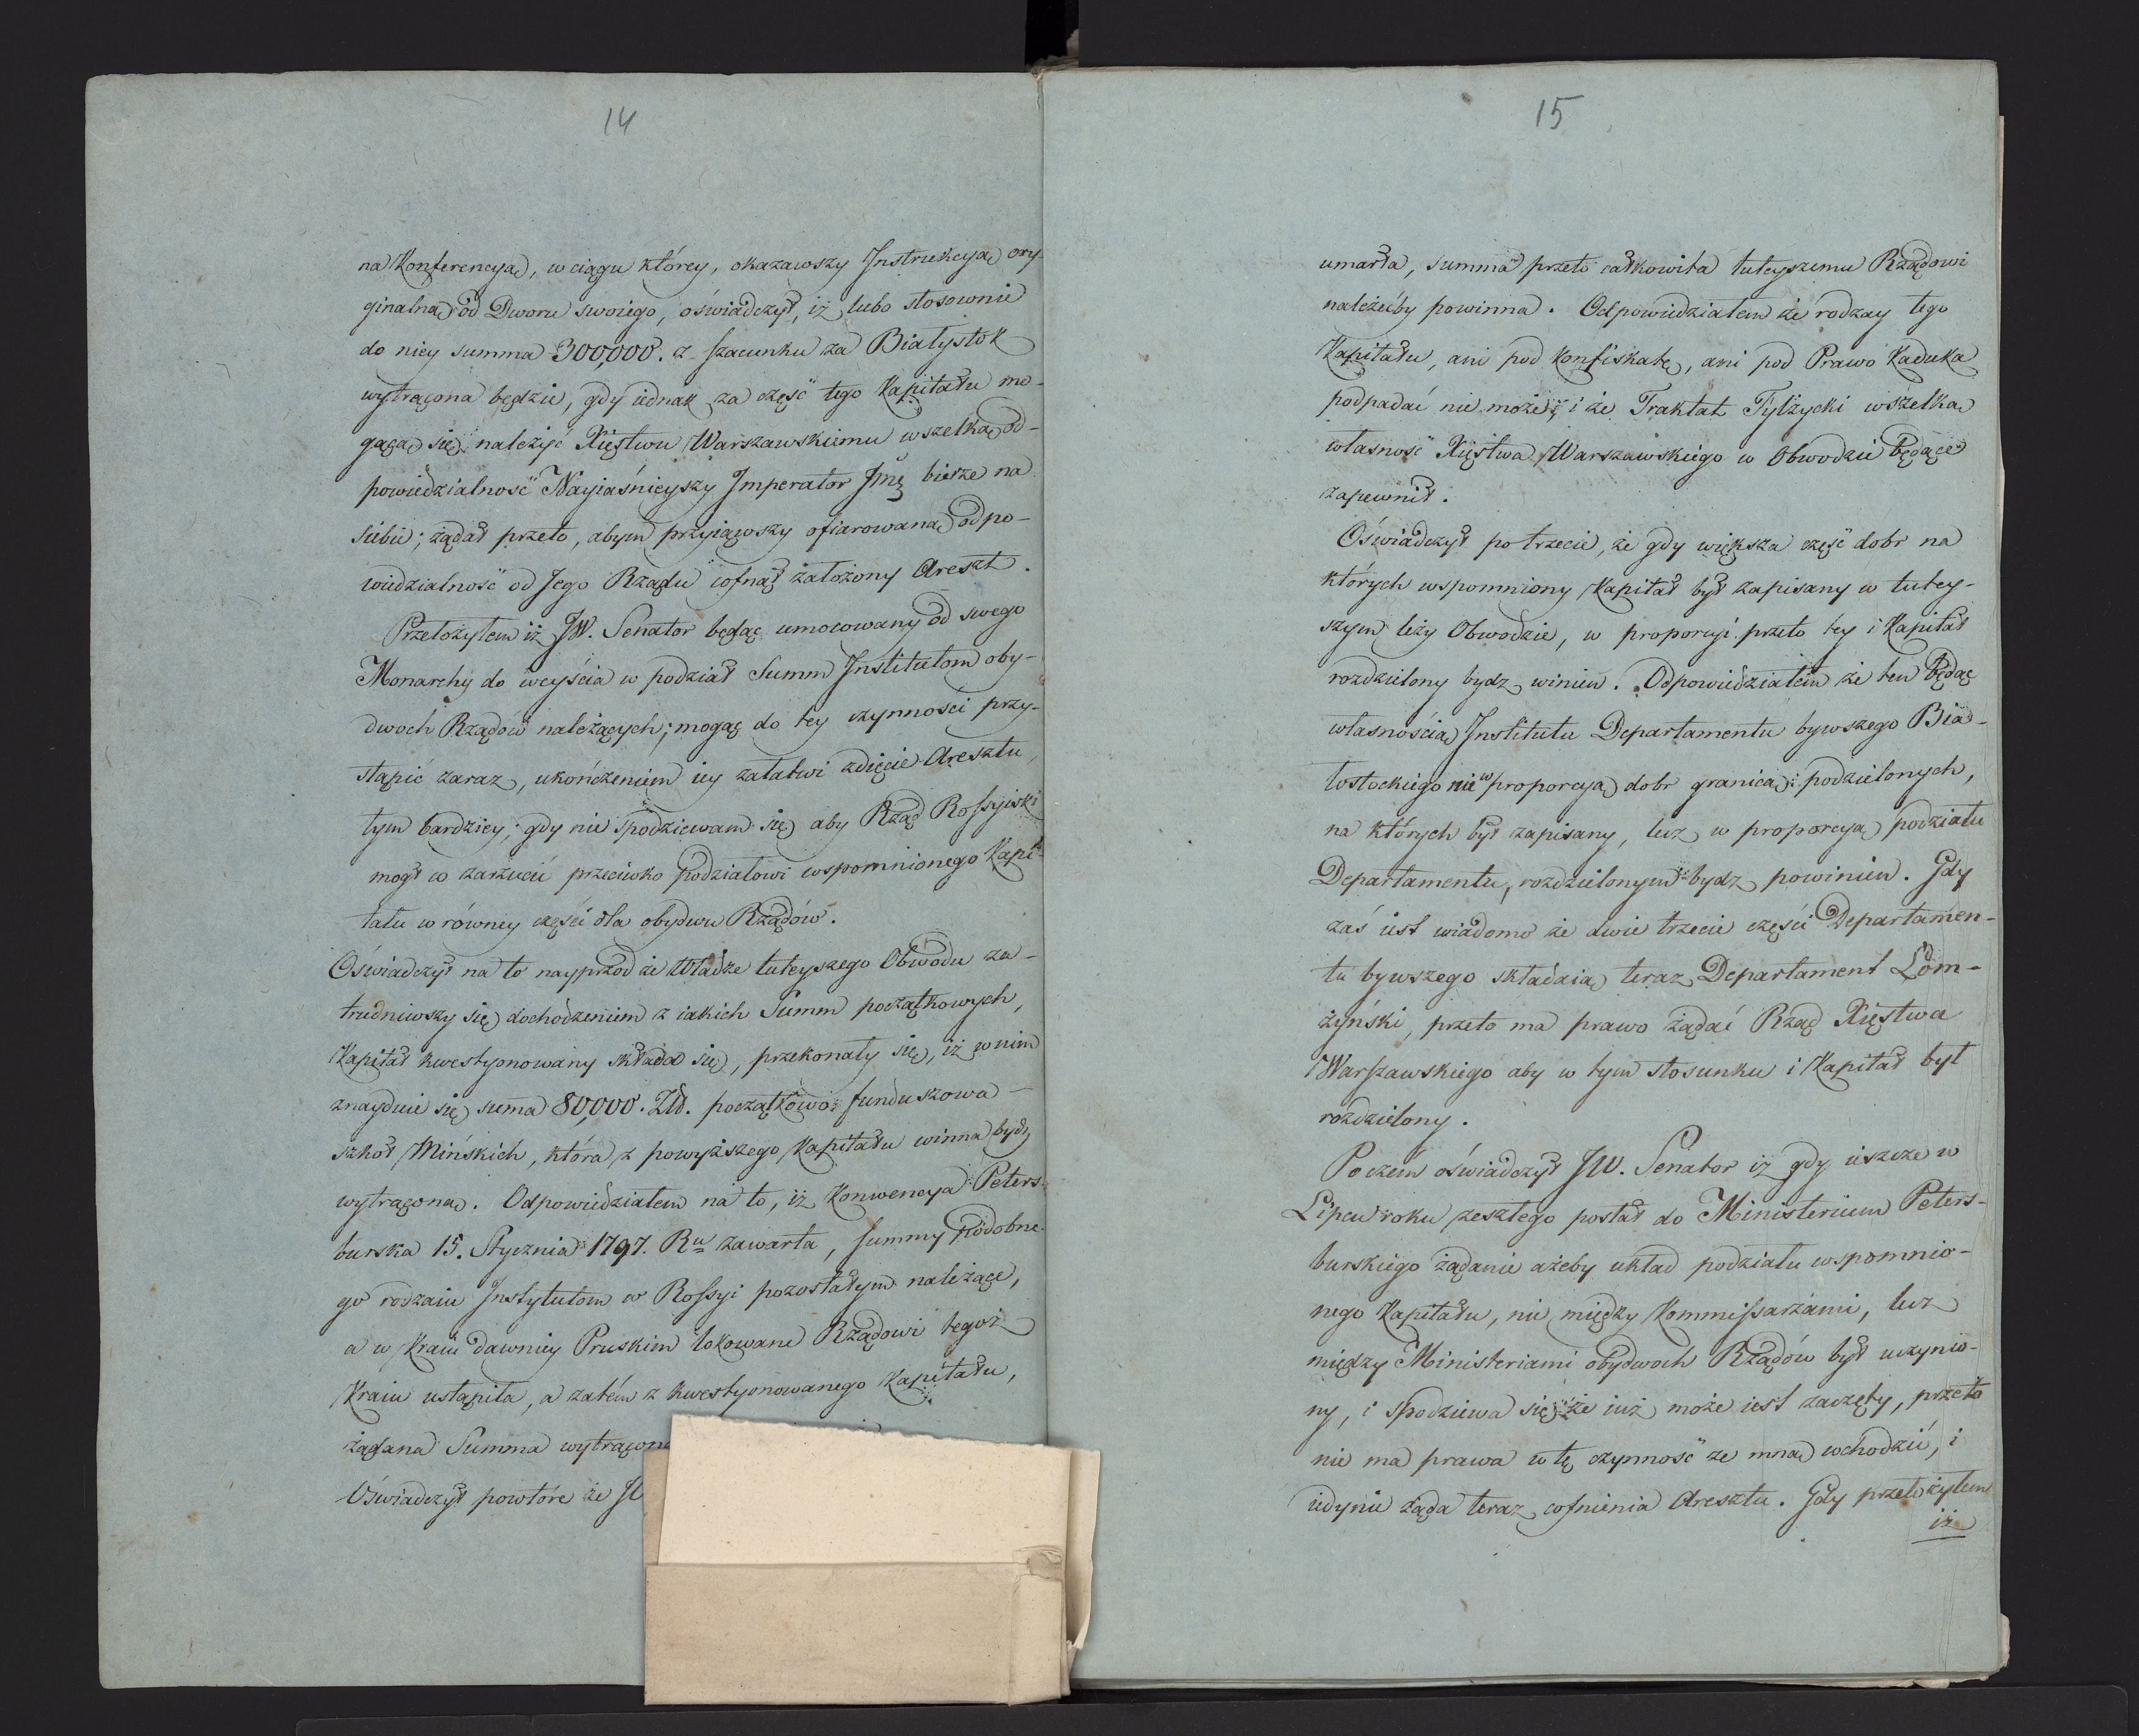 14
na Konferencyą, w ciągu którey, okazawszy Instrukcyą ory-
ginalną od Dworu swoiego, oświadczył, iż lubo stosownie
do niey summa 300,000. z szacunku za Białystok
wytrącona będzie, gdy iednak za część tego Kapitału mo-
gącą się należyć Xięstwu Warszawskiemu wszelką od-
powiedzialność Nayiaśnieyszy Imperator Jmę bierze na
siebie; żądał przeto, abym przyiąwszy ofiarowaną odpo-
wiedzialność od Jego Rządu cofnął założony Areszt.
Przełożyłem iż JW. Senator będąc umocowany od swego
Monarchy do weyścia w podział Summ Institutom oby-
dwoch Rządów należących; mogąc do tey czynności przy-
stąpić zaraz, ukończeniem iey załatwi zdięcie Aresztu,
tym bardziey; gdy nie spodziewam się aby Rząd Rossyiski
mogł co zarzucić przeciwko podziałowi wspomnionego Kapi-
tału w równey części dla obydwu Rządów.
Oświadczył na to nayprzod że Władze tuteyszego Obwodu za-
trudniwszy się dochodzeniem z iakich Summ początkowych,
Kapitał kwestyonowany składa się, przekonały się, iż w nim
znayduie się suma 80,000. Złł. początkowo funduszowa
szkoł Mińskich, która z powyższego Kapitału winna bydź
wytrąconą. Odpowiedziałem na to, iż Konwencya Peters-
burska 15. Stycznia 1797. Ru zawarta, summy podobne-
go rodzaiu Instytutom w Rossyi pozostałym należące,
a w Kraiu dawniey Pruskim lokowane Rządowi tegoż
Kraiu ustąpiła, a zatém z kwestyonowanego Kapitału,
żądana Summa wytrącon
Oświadczył powtóre że
15
umarła, summa przeto całkowita tuteyszemu Rządowi
należećby powinna. Odpowiedziałem że rodzay tego
Kapitału, ani pod Konfiskatę, ani pod Prawo Kaduka
podpadać nie może; i że Traktat Tylżycki wszelką
własność Xięstwa Warszawskiego w Obwodzie będące
zapewnił.
Oświadczył potrzecie, że gdy większa część dobr na
których wspomniony Kapitał był zapisany w tutey-
szym leży Obwodzie, w proporcyi przeto tey i Kapitał
rozdzielony bydz winien. Odpowiedziałem że ten będąc
własnością Institutu Departamentu bywszego Bia-
łostockiego nie w proporcyą dobr granicą podzielonych,
na których był zapisany, lecz w proporcyą podziału
Departamentu, rozdzielonym bydz powinien. Gdy
zaś iest wiadomo że dwie trzecie części Departamen-
tu bywszego składaią teraz Departament Łom-
żyński, przeto ma prawo żądać Rząd Xięstwa
Warszawskiego aby w tym stosunku i Kapitał był
rozdzielony.
Poczem oświadczył JW. Senator iż gdy ieszcze w
Lipcu roku zeszłego posłał do Ministerium Peters-
burskiego żądanie ażeby układ podziału wspomnio-
nego Kapitału, nie między Kommissarzami, lecz
między Ministeriami obydwoch Rządów był uczynio-
ny, i spodziewa się że iuż może iest zaczęty, przeto
nie ma prawa w tę czynność ze mną wchodzić, i
iedynie żąda teraz cofnienia Aresztu. Gdy przełożyłem
iż